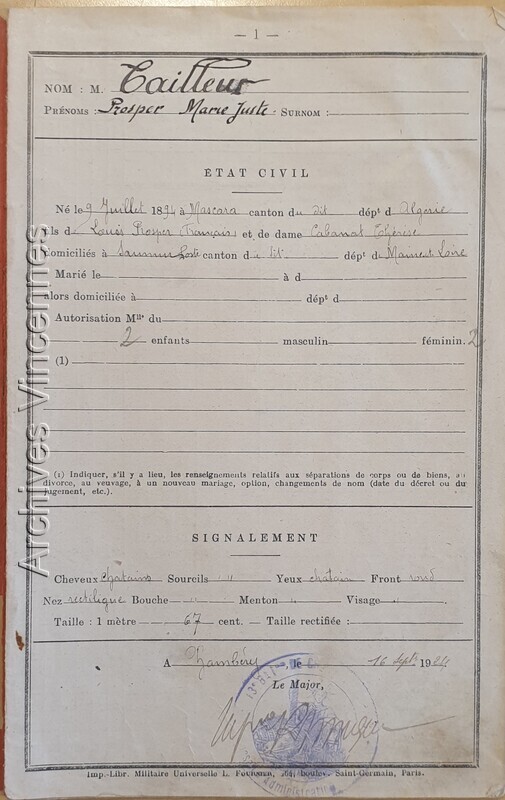 — 1 —
NOM : M. Tailleur
PRÉNOMS : Prosper Marie Juste SURNOM :
ÉTAT CIVIL
Né le 9 Juillet 1894 à Mascara canton du dit dépt d Algérie
ls d Louis Prosper (Français) et de dame Cabanat Thérèse
Domiciliés à Saumur canton du dit dépt d Maine et Loire
Marié le à d
alors domiciliée à dépt d
Autorisation Mlle du
2 enfants masculin féminin. 2
(1)
(1) Indiquer, s'il y a lieu, les renseignements relatifs aux séparations de corps ou de biens, au
divorce, au veuvage, à un nouveau mariage, option, changements de nom (date du décret ou du
jugement, etc.).
SIGNALEMENT
Cheveux chatains Sourcils " Yeux chatain Front rond
Nez rectiligne Bouche " Menton " Visage "
Taille : 1 mètre 67 cent. Taille rectifiée :
A Chambéry, le 16 Septe 1924
Le Major,
Imp.-Libr. Militaire Universelle L. FOURNIER, 264, boulev. Saint-Germain, Paris.
Archives Vincennes